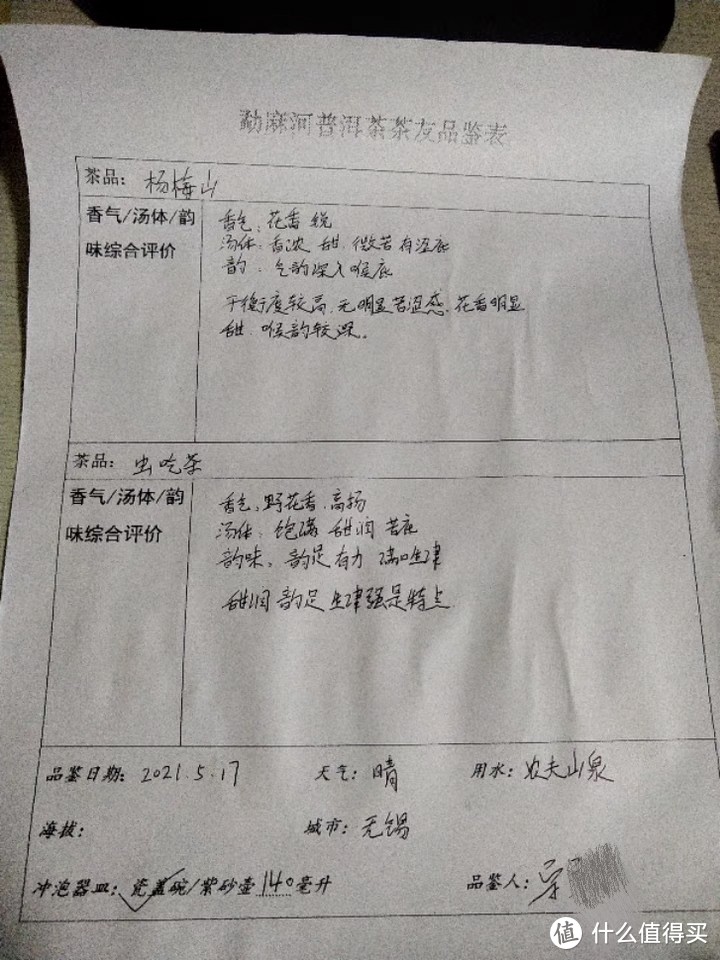 勐麻河普洱茶茶友品鉴表
茶品：杨梅山
香气/汤体/韵
味综合评价
香气：花香 锐
汤体：香浓 甜 微苦有涩底
韵：气韵深入喉底
平衡度较高，无明显苦涩感，花香明显
甜，喉韵较深。
茶品：虫吃茶
香气/汤体/韵
味综合评价
香气：野花香、高扬
汤体：饱满 甜润 苦底
韵味：韵足有力 满口生津
甜润 韵足 生津强是特点
品鉴日期：2021.5.17 天气：晴 用水：农夫山泉
海拔： 城市：无锡
冲泡器皿：瓷盖碗/紫砂壶140毫升 品鉴人：
值 什么值得买